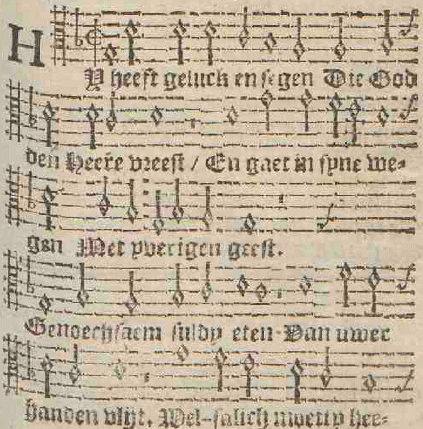 HY heeft geluck en segen Die God
den Heere vreest / En gaet in syne we-
gen Met yverigen geest.
Genoechsaem suldy eten Van uwer
handen vlijt, Wel-salich moetty hee-